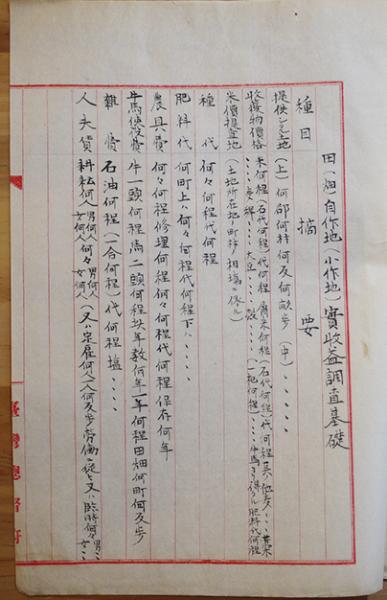 田(畑)自作地(小作地)實收益調査基礎
種目 摘要
提供シタル土地(上)何郡何村何及何畝歩(中)、、、、、
收穫物價格 米何程(石代何程)代何程 屑米何程(石代何程)代何程
米價提査地(土地所在地ノ町村ノ相場ニ依ル)
種代 何々何程代何程
肥料代 何町上ハ何々何程代何程下ハ、、、、
農具費 何々何程修理何程何々何程代何程保存何年
牛馬使役費 牛一頭何程馬二頭何程以年数何年一年何程田畑何町何反歩
雜費 石油何程(一合何程)代何程塩、、、、
人夫賃 耕耘何人男何人女何人何々男何人女何人(又ハ定雇何人一人何反歩労働ニ従ヒ又ハ臨時何々男、、女、、
臺灣總督府